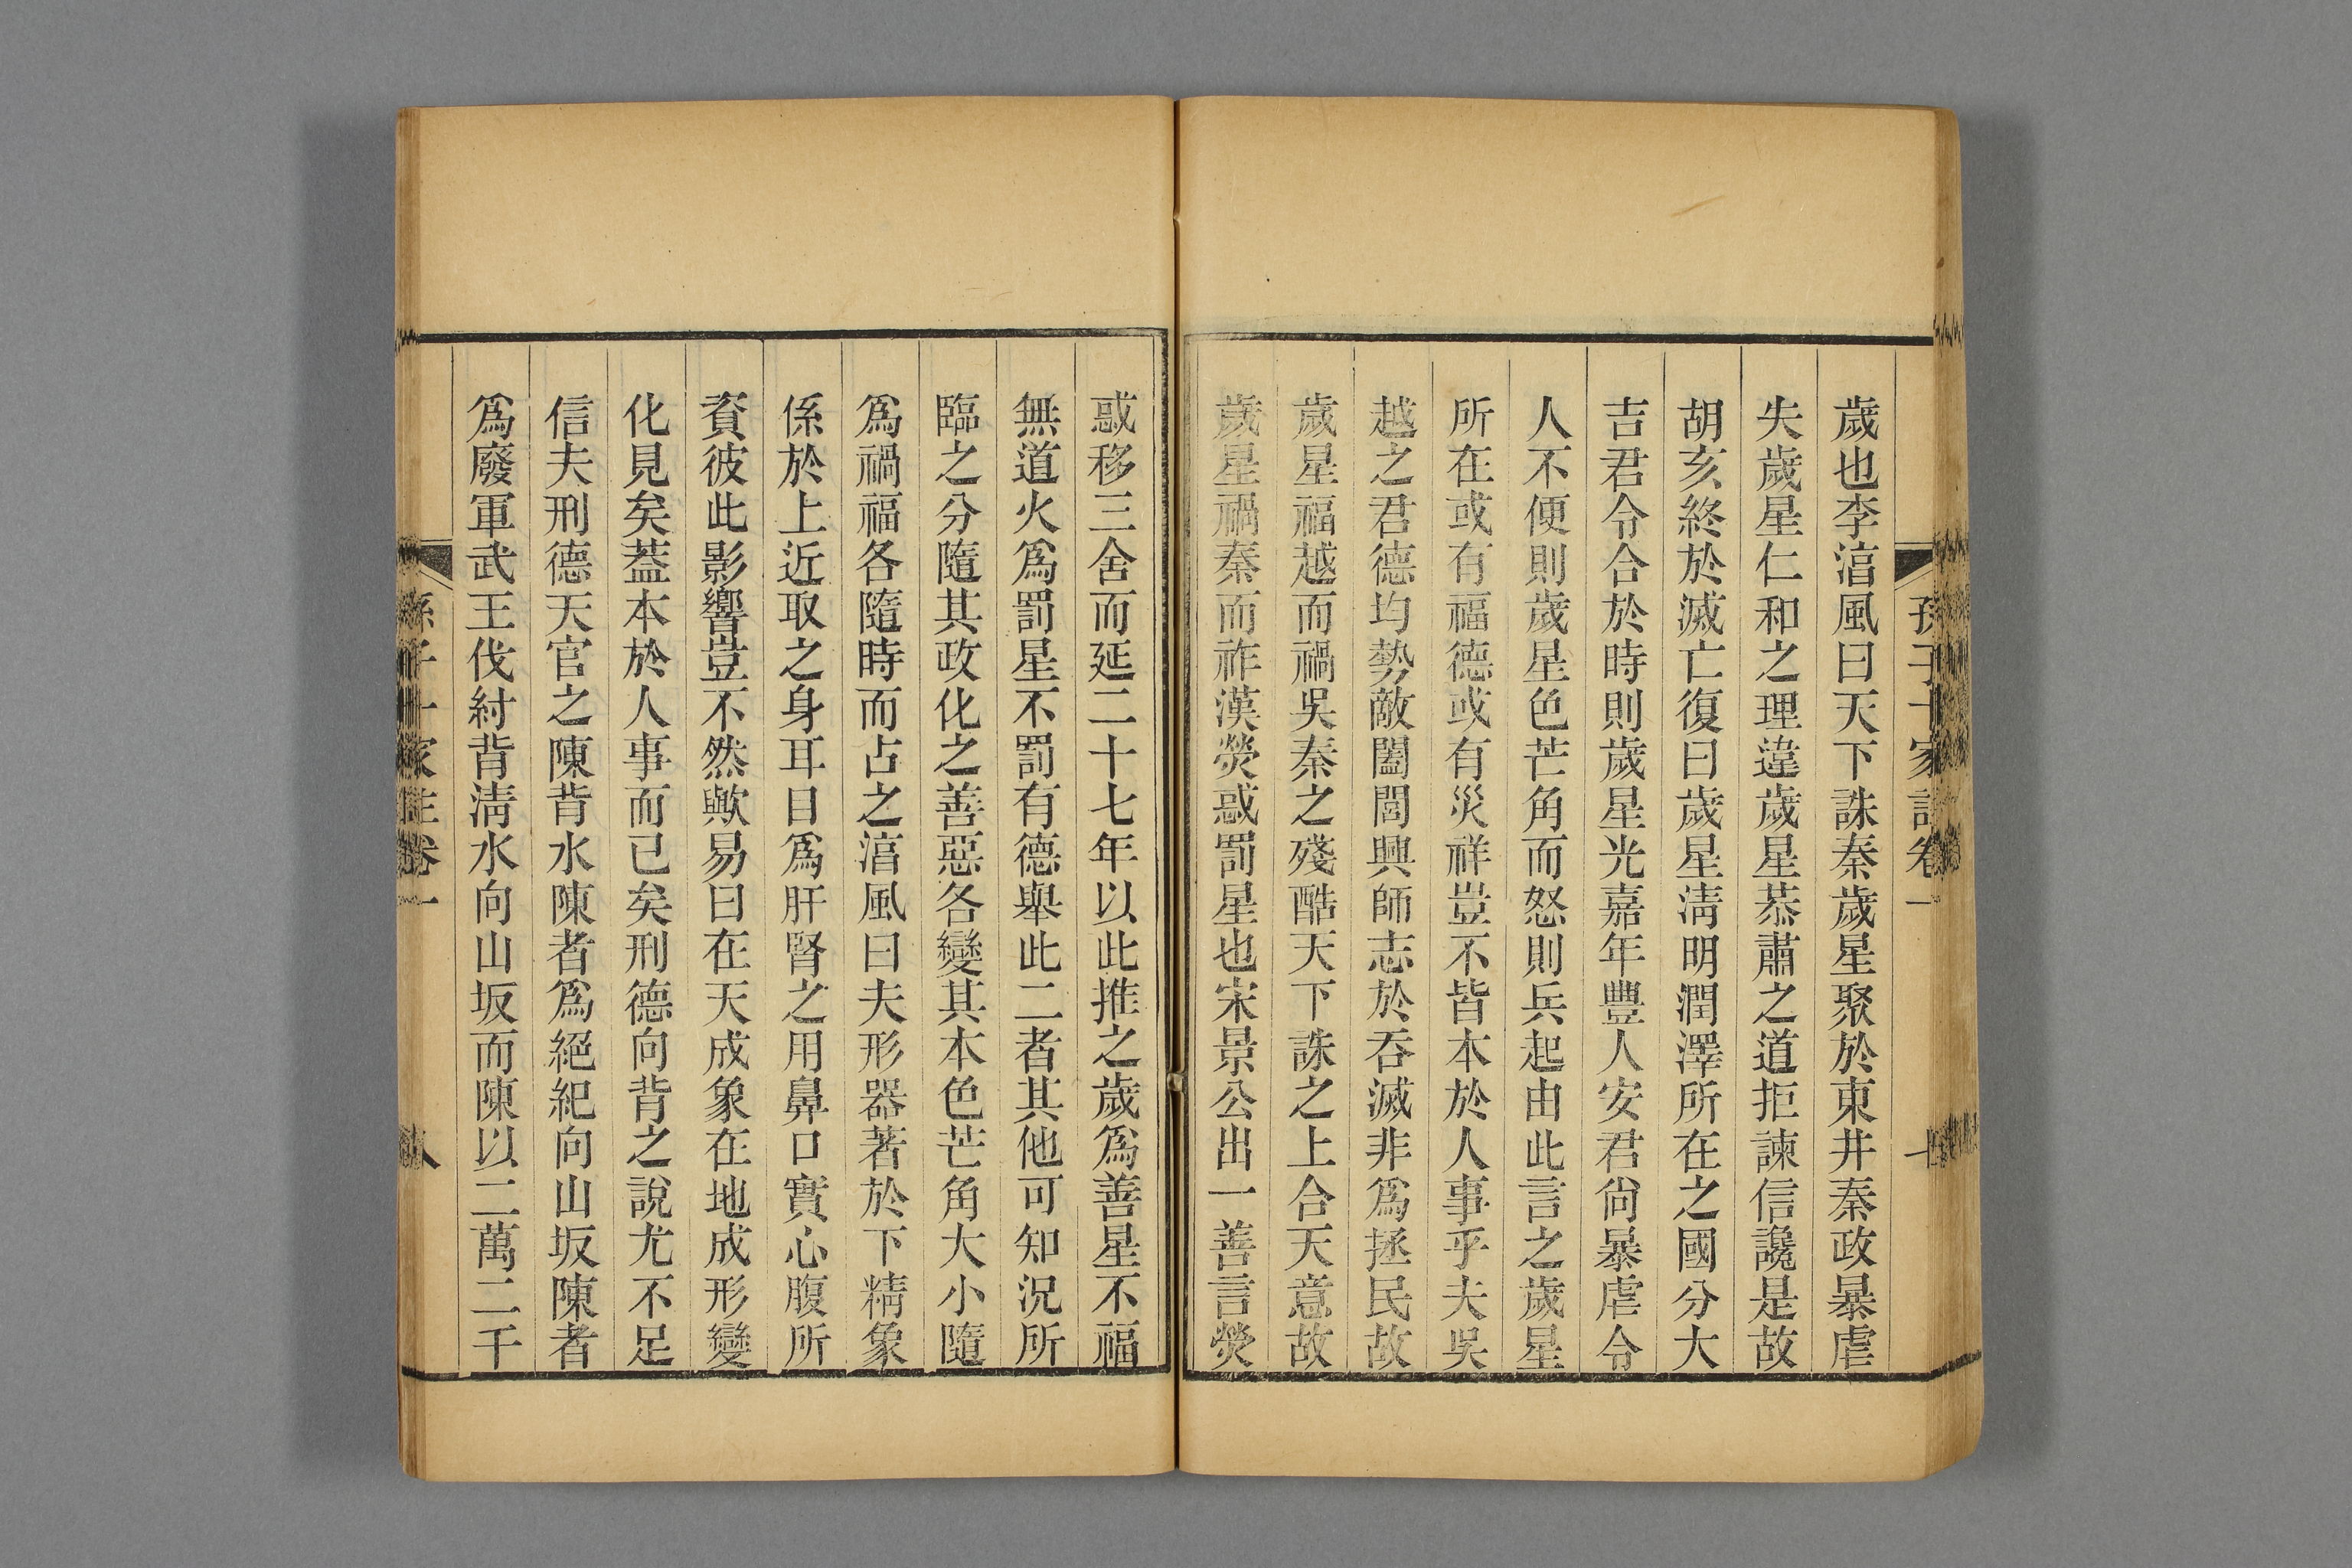 歲也李湻風曰天下誅秦歲星聚於東井秦政暴虐
失歲星仁和之理違歲星恭肅之道拒諫信讒是故
胡亥終於滅亡復曰歲星淸明潤澤所在之國分大
吉君令合於時則歲星光嘉年豐人安君尙暴虐令
人不便則歲星色芒角而怒則兵起由此言之歲星
所在或有福德或有災祥豈不皆本於人事乎夫吳
越之君德均勢敵闔閭興師志於吞滅非爲拯民故
歲星福越而禍吳秦之殘酷天下誅之上合天意故
歲星禍秦而祚漢熒惑罰星也宋景公出一善言熒
惑移三舍而延二十七年以此推之歲爲善星不福
無道火爲罰星不罰有德舉此二者其他可知況所
臨之分隨其政化之善惡各變其本色芒角大小隨
爲禍福各隨時而占之湻風曰夫形器著於下精象
係於上近取之身耳目爲肝腎之用鼻口實心腹所
資彼此影響豈不然歟易曰在天成象在地成形變
化見矣葢本於人事而已矣刑德向背之說尤不足
信夫刑德天官之陳背水陳者爲絕紀向山坂陳者
爲廢軍武王伐紂背淸水向山坂而陳以二萬二千
孫子十家註卷一
八